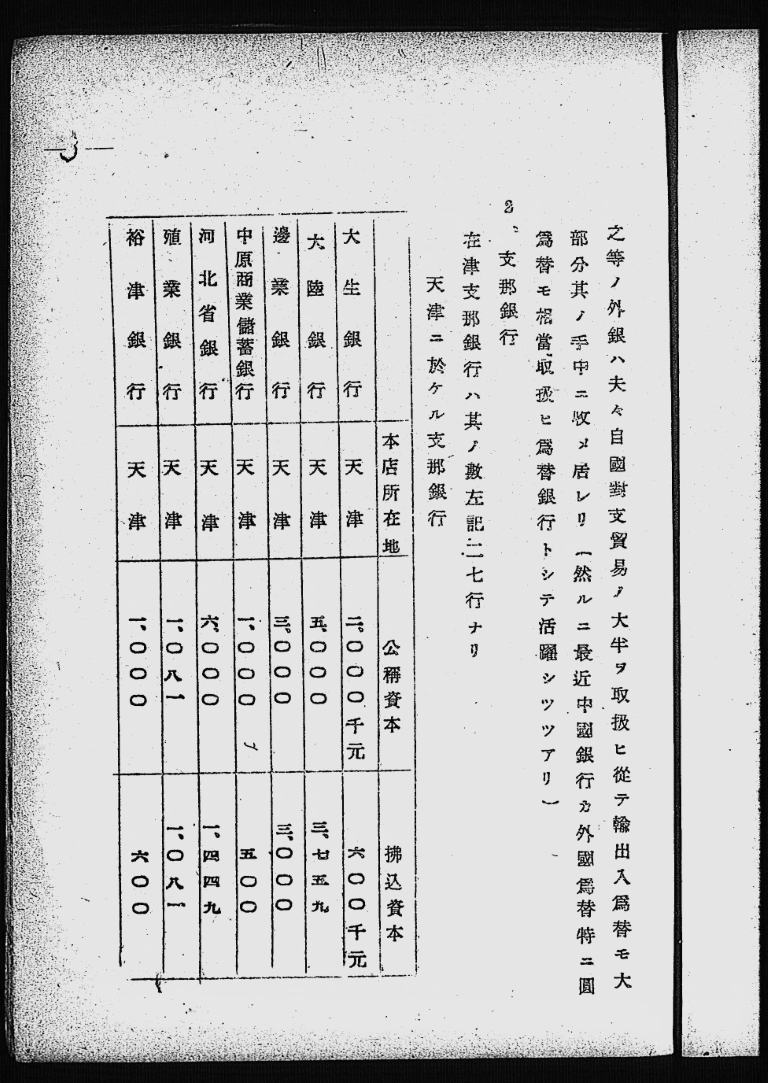 之等ノ外銀ハ夫々自國對支貿易ノ大半ヲ取扱ヒ從テ輸出入爲替モ大
部分其ノ手中ニ收メ居レリ（然ルニ最近中國銀行カ外國爲替特ニ圓
爲替モ相當取扱ヒ爲替銀行トシテ活躍シツツアリ）
2、支那銀行
在津支那銀行ハ其ノ數左記二七行ナリ
天津ニ於ケル支那銀行
本店所在地 公稱資本 拂込資本
大生銀行 天津 二、〇〇〇千元 六〇〇千元
大陸銀行 天津 五、〇〇〇 三、七五九
邊業銀行 天津 三、〇〇〇 三、〇〇〇
中原商業儲蓄銀行 天津 一、〇〇〇 五〇〇
河北省銀行 天津 六、〇〇〇 一、四四九
殖業銀行 天津 一、〇八一 一、〇八一
裕津銀行 天津 一、〇〇〇 六〇〇
3